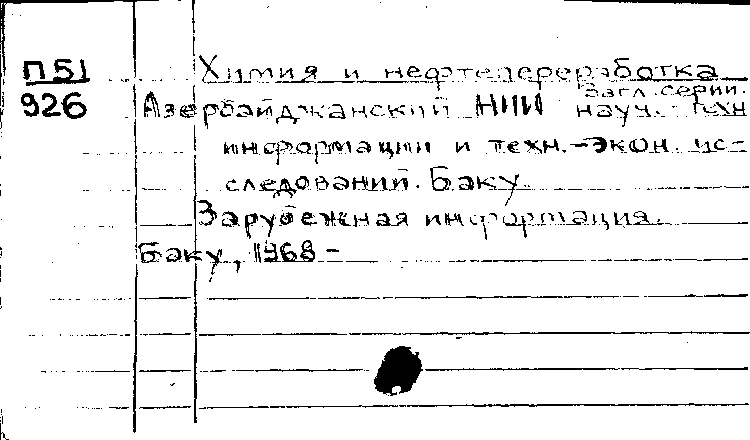 П51
926
Химия и нефтепереработка
Загл. серии.
Азербайджанский НИИ науч.-техн
информации и техн.-экон. ис-
следований. Баку.
Зарубежная информация.
Баку, 1968 -